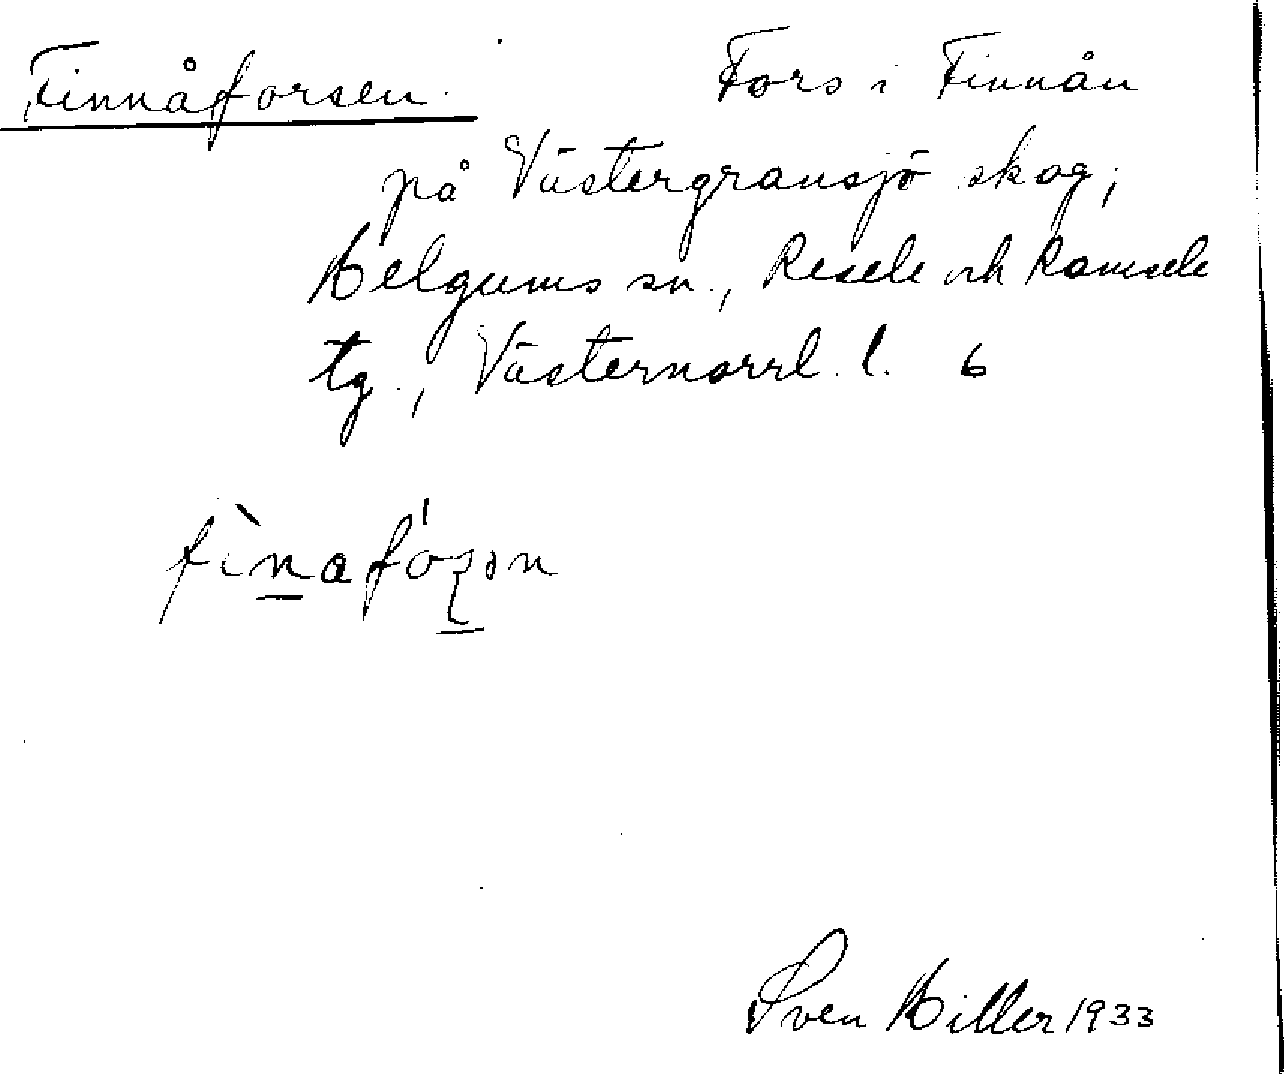 Finnåforsen. Fors i Finnån
på Västergransjö skog,
Helgums sn., Resele och Ramsele
tg., Västernorrl. l. 6
Sven Hiller 1933